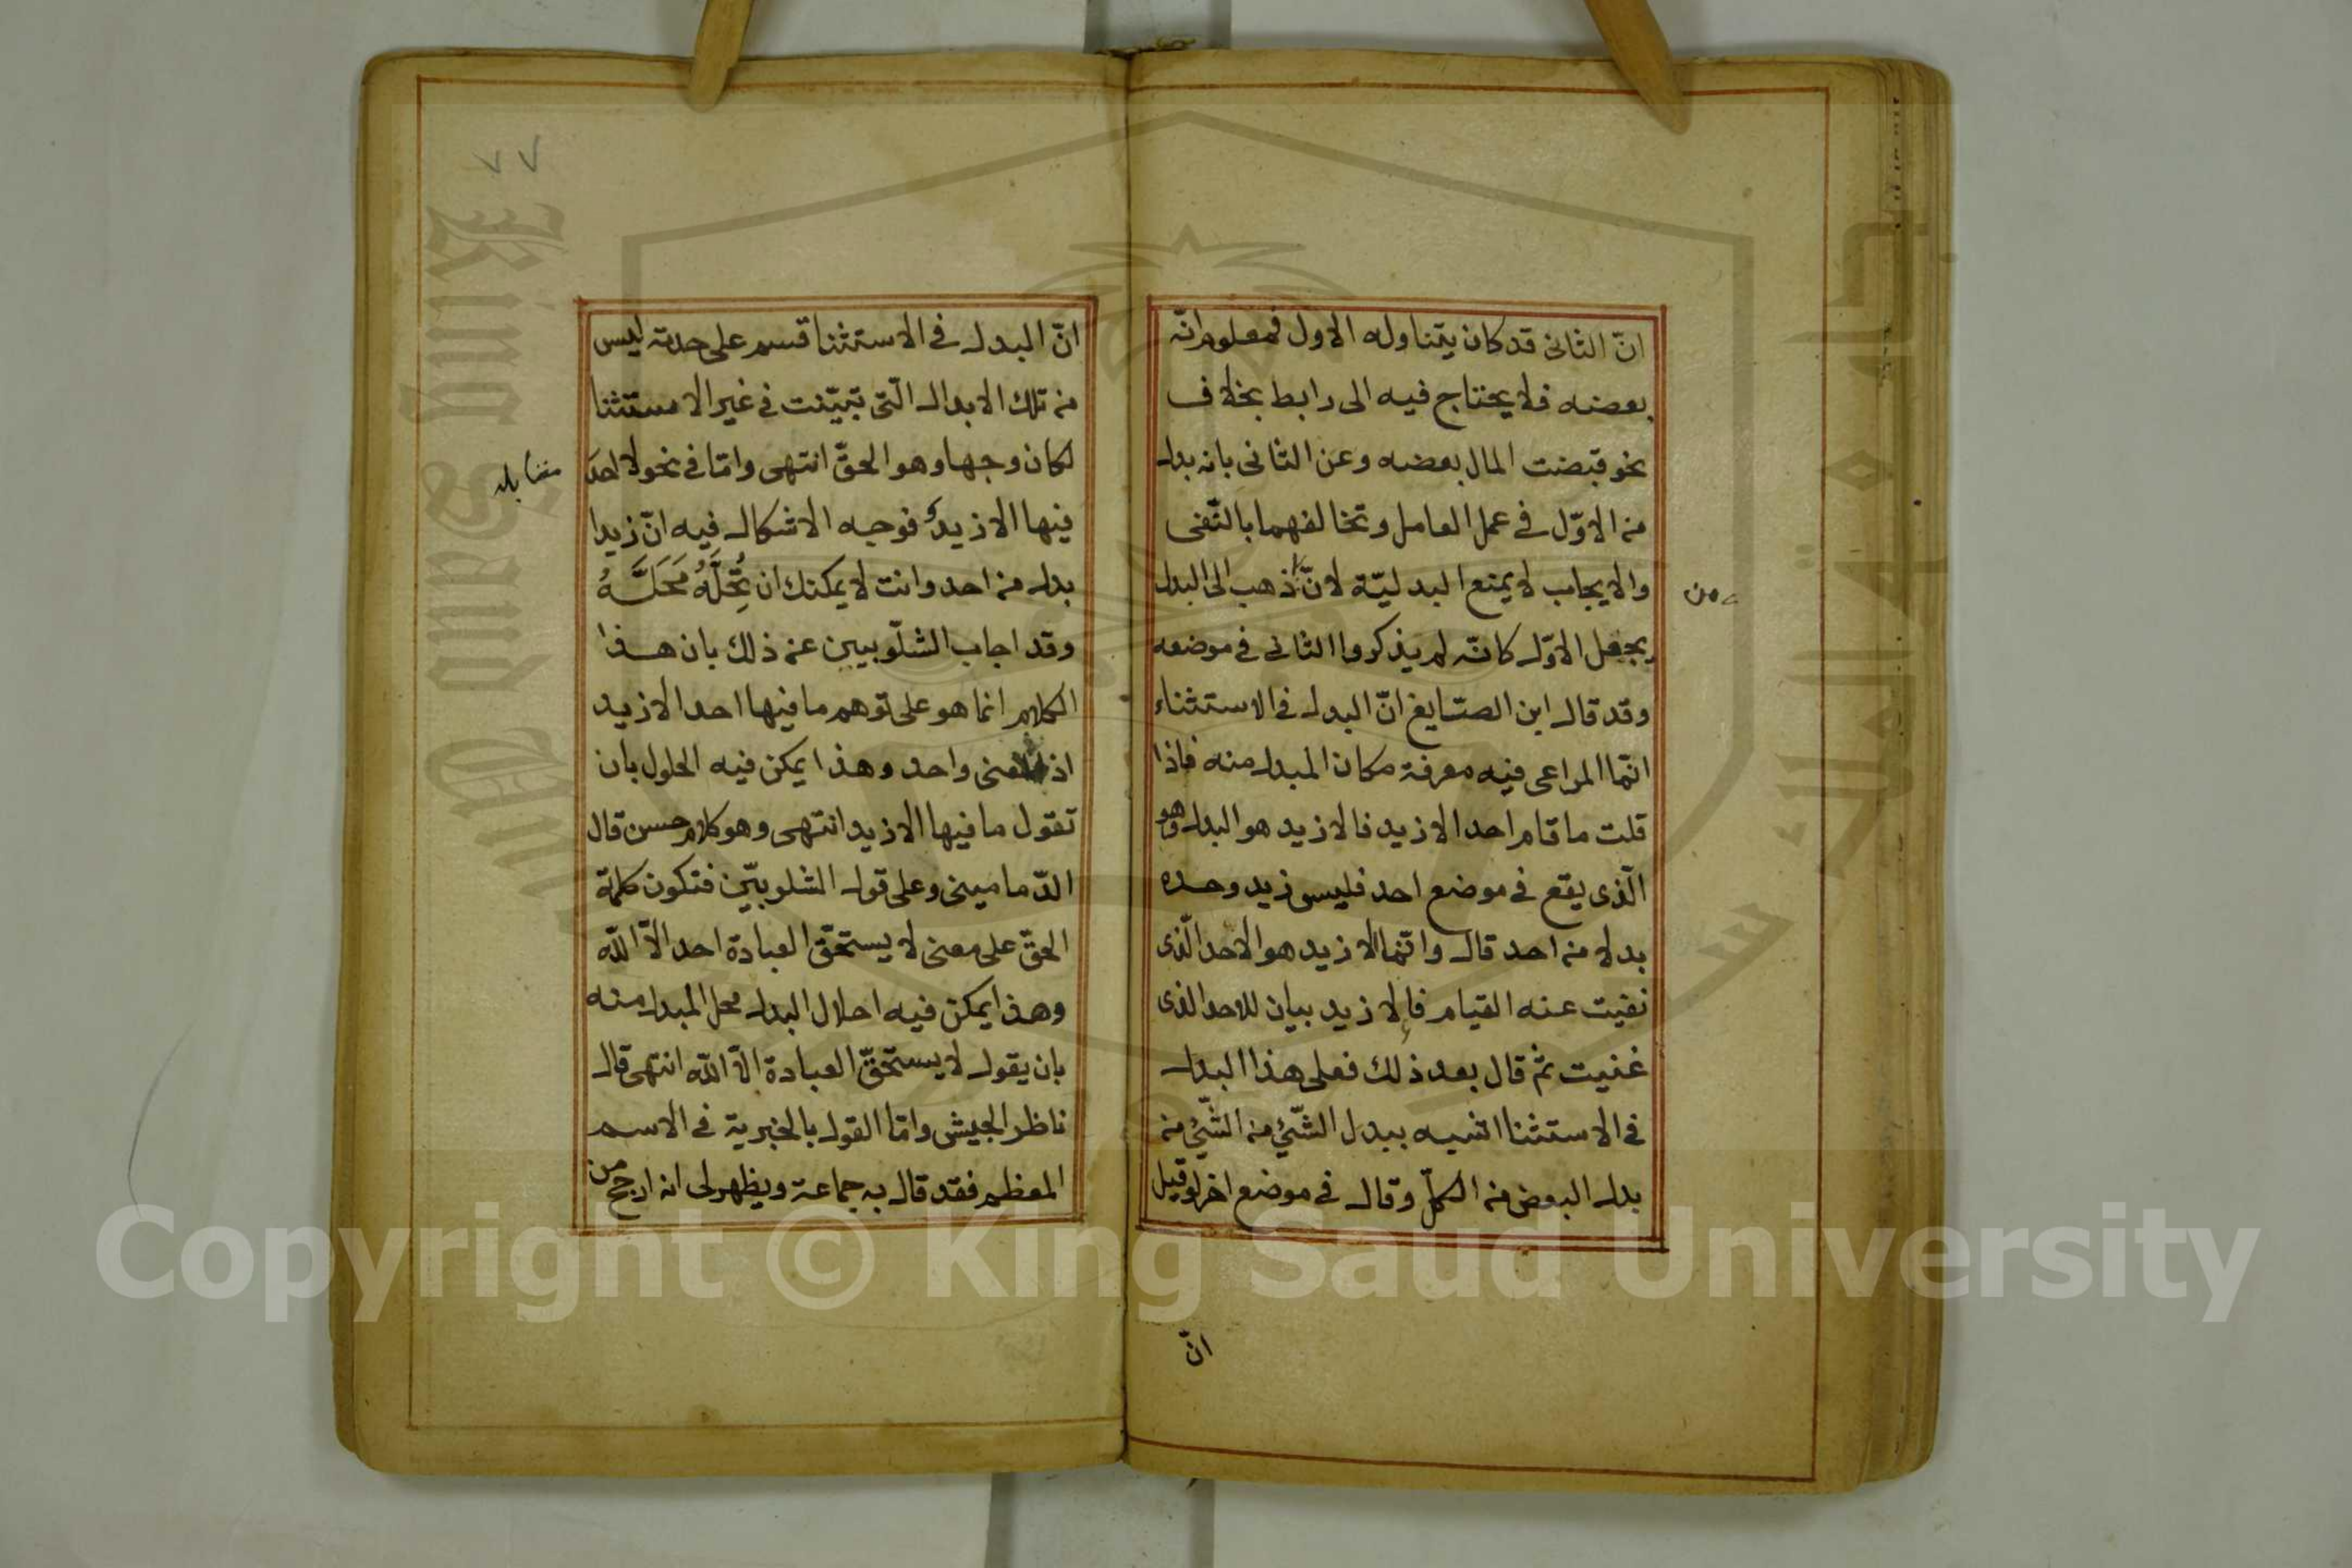 انّ الثانى قد كان يتناوله الاول فمعلوم انّه
بعضه فلا يحتاج فيه الى رابط بخلاف
نحو قبضت المال بعضه وعن الثانى بانه بدل
من الاوّل فى عمل العامل وتخالفهما بالنّفى
والايجاب لا يمنع البدليّة لانّ ذهب الى البدل
من
يجعل الاوّل كانّه لم يذكر والثانى فى موضعه
وقد قال ابن الصّايغ انّ البدل فى الاستثناء
انّما المراعى فيه معرفة مكان المبدل منه فاذا
قلت ما قام احد الا زيد فالا زيد هو البدل وهو
الّذى يقع فى موضع احد فليس زيد وحده
بدلا من احد قال وانّما الا زيد هو الاحد الّذى
نفيت عنه القيام فالا زيد بيان للاحد الذى
عنيت ثم قال بعد ذلك فعلى هذا البدل
فى الاستثنا اشبه ببدل الشّئ من الشّئ من
بدل البعض من الكلّ وقال فى موضع اخر لو قيل
انّ
٧٧
انّ البدل فى الاستثنا قسم على حدته ليس
من تلك الابدال الّتى تبيّنت فى غير الاستثنا
لكان وجها وهو الحقّ انتهى وامّا فى نحو لا احد
مقابله
فيها الا زيد فوجه الاشكال فيه انّ زيدا
بدل من احد وانت لا يمكنك ان تُحِلَّهُ مَحَلَّهُ
وقد اجاب الشلّوبيين عن ذلك بان هذا
الكلام انما هو على توهم ما فيها احد الا زيد
اذ المعنى واحد وهذا يمكن فيه الحلول بان
تقول ما فيها الا زيد انتهى وهو كلام حسن قال
الدّمامينى وعلى قول الشلوبيّين فتكون كلمة
الحقّ على معنى لا يستحقّ العبادة احد الاّ اللّه
وهذا يمكن فيه احلال البدل محل المبدل منه
بان يقول لا يستحقّ العبادة الاّ اللّه انتهى قال
ناظر الجيش وامّا القول بالخبرية فى الاسم
المعظم فقد قال به جماعة ويظهر لى انه ارجح من
Copyright © King Saud University
King Saud